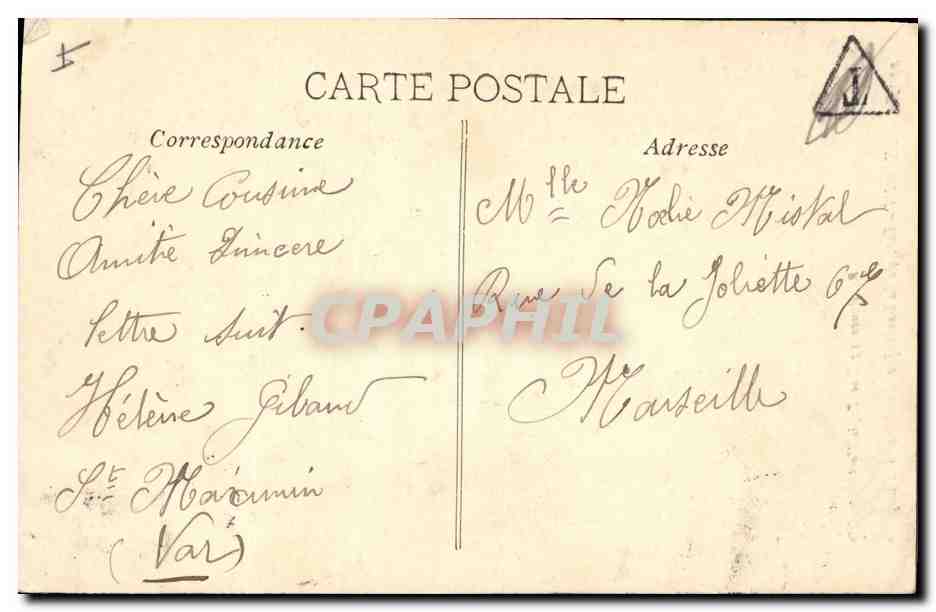 CARTE POSTALE
T
Correspondance
Chère Cousine
Amitié Sincere
lettre suit.
Hélène Gibaud
St Maximin
(Var)
Adresse
Mlle Mistral
Rue de la Joliette 67
Marseille
CPAPHIL